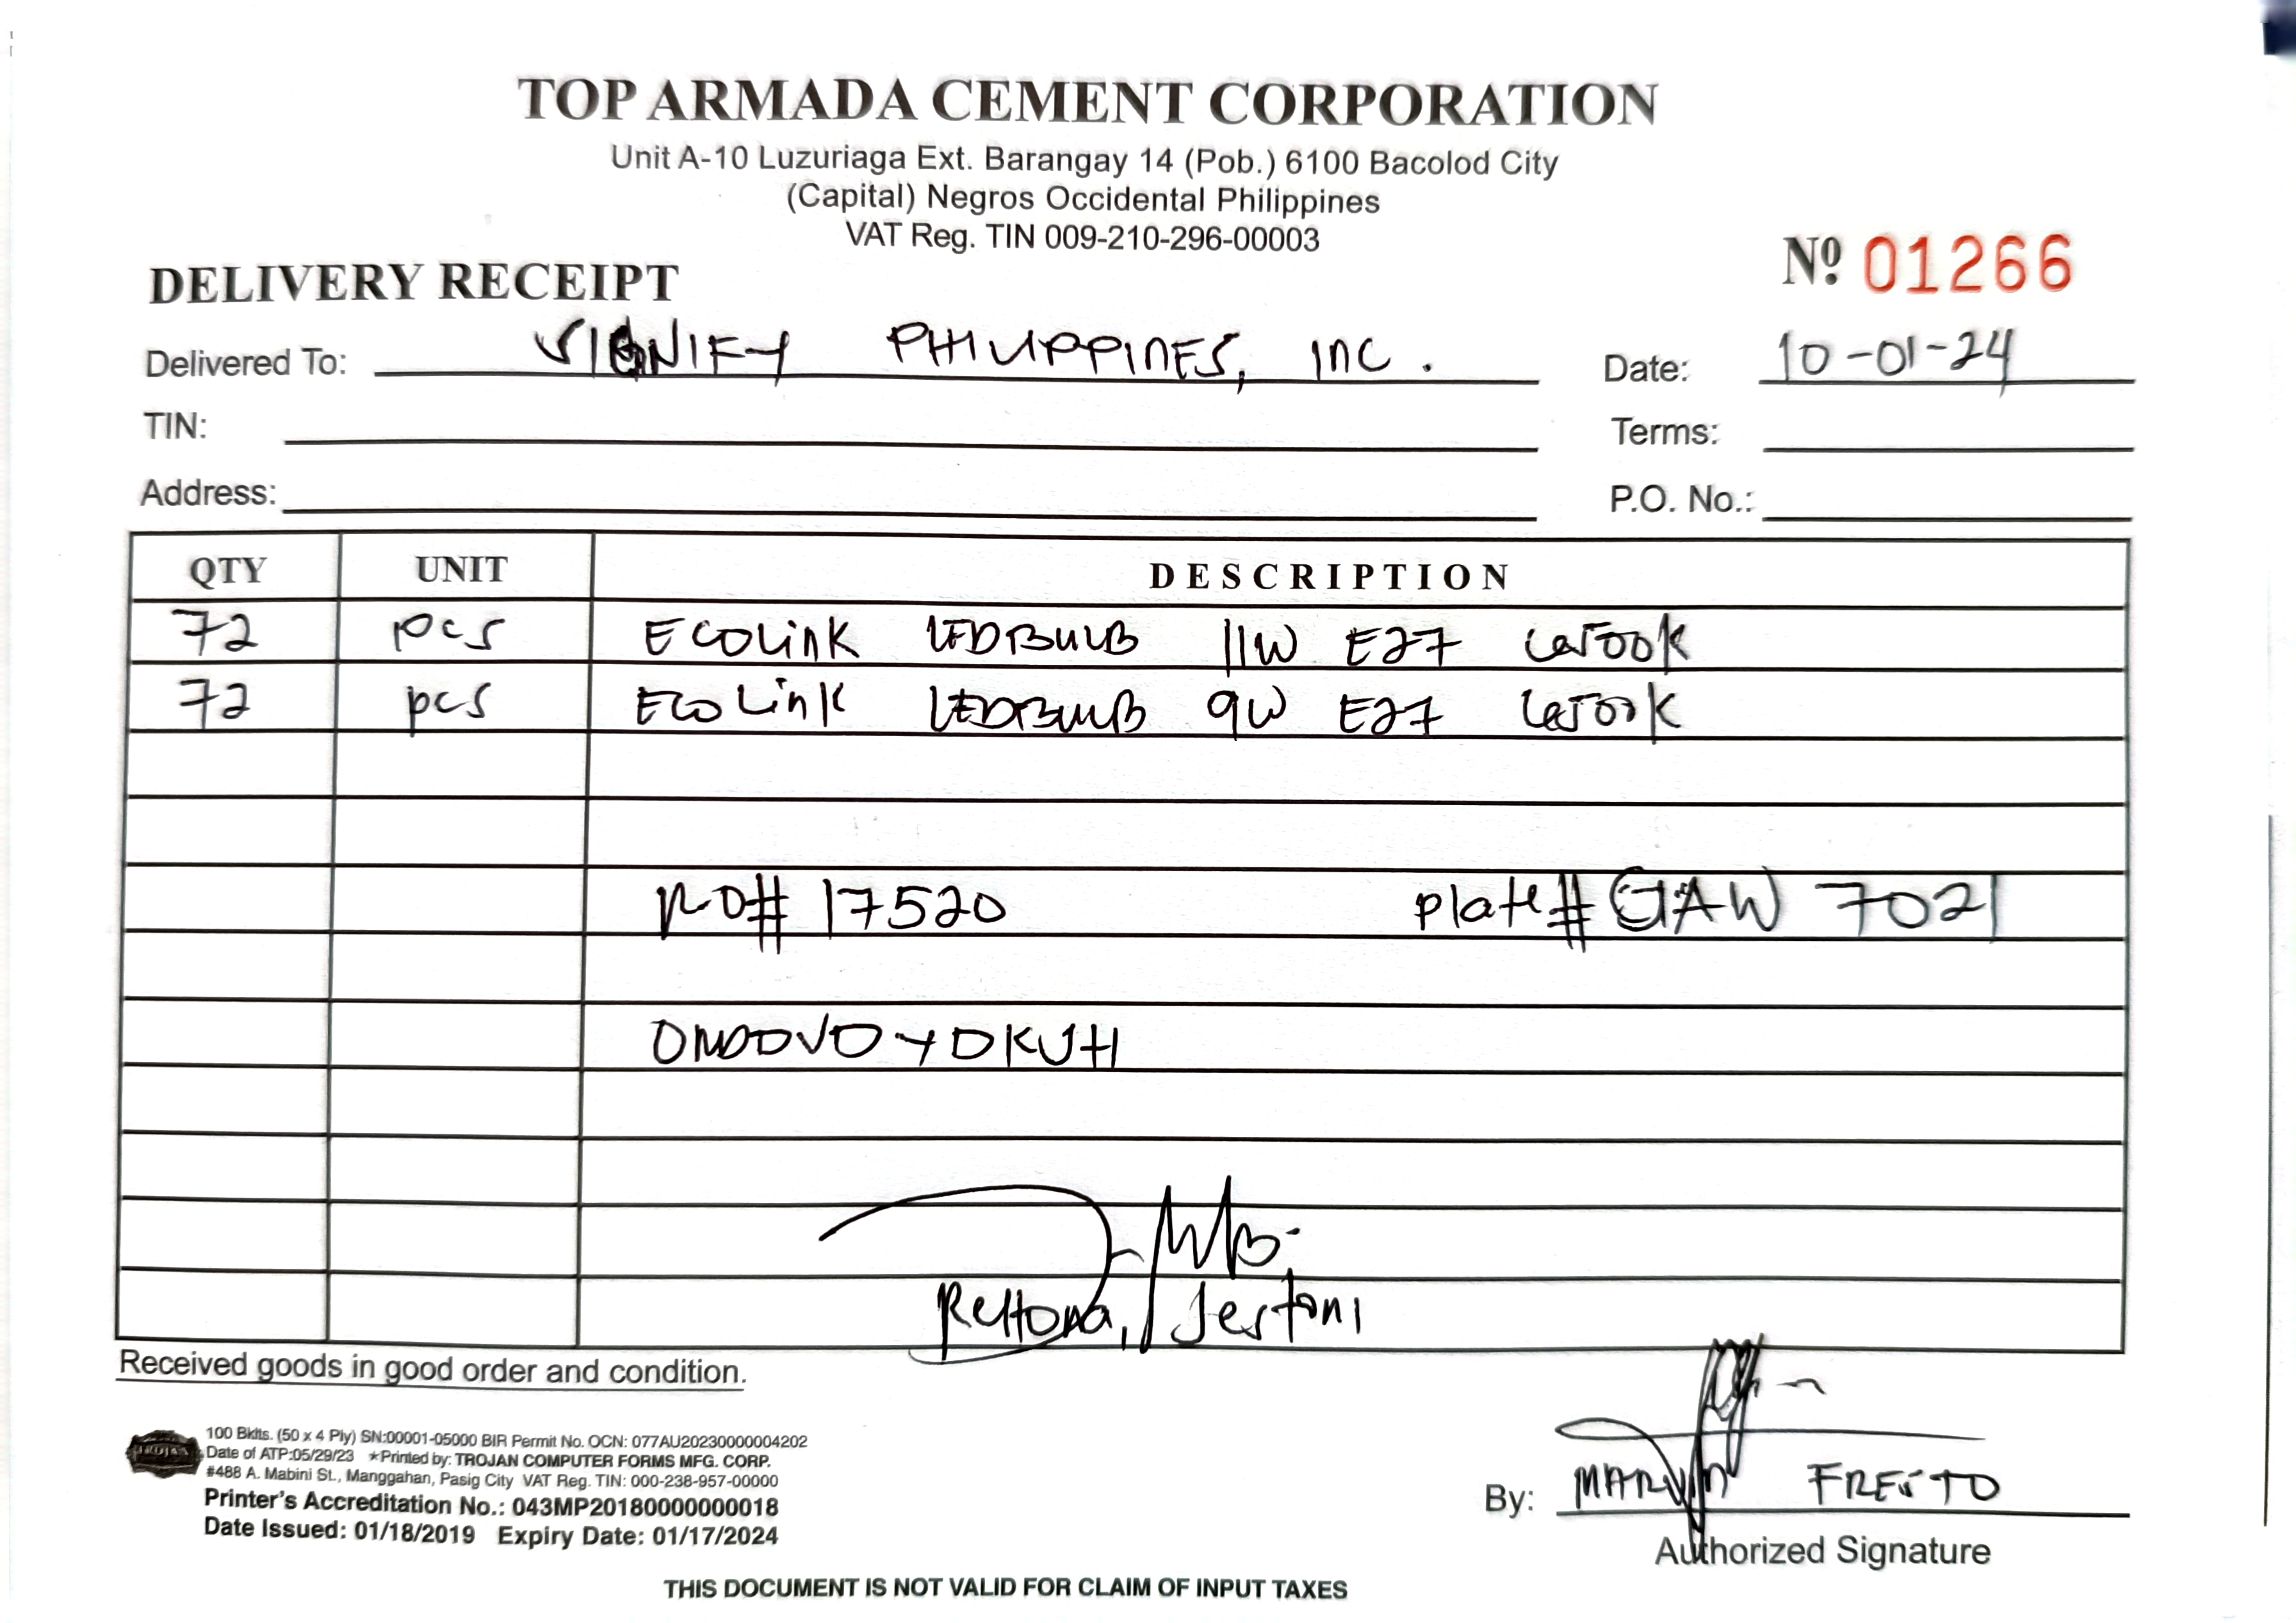 TOP ARMADA CEMENT CORPORATION
Unit A-10 Luzuriaga Ext. Barangay 14 (Pob.) 6100 Bacolod City
(Capital) Negros Occidental Philippines
VAT Reg. TIN 009-210-296-00003
DELIVERY RECEIPT Nº 01266
Delivered To: SIGNIFY PHILIPPINES, INC. Date: 10-01-24
TIN: Terms:
Address: P.O. No.:
QTY UNIT DESCRIPTION
72 pcs ECOLink LEDBULB 11W E27
72 pcs ECOLink LEDBULB 9W E27
# 17520 plate# GAW 7021
Jestoni
Received goods in good order and condition.
100 Bklts. (50 x 4 Ply) SN:00001-05000 BIR Permit No. OCN: 077AU20230000004202
TROJAN Date of ATP:05/29/23 ★Printed by: TROJAN COMPUTER FORMS MFG. CORP.
#488 A. Mabini St., Manggahan, Pasig City VAT Reg. TIN: 000-238-957-00000
Printer's Accreditation No.: 043MP20180000000018
Date Issued: 01/18/2019 Expiry Date: 01/17/2024
By: MARVIN FRESTO
Authorized Signature
THIS DOCUMENT IS NOT VALID FOR CLAIM OF INPUT TAXES